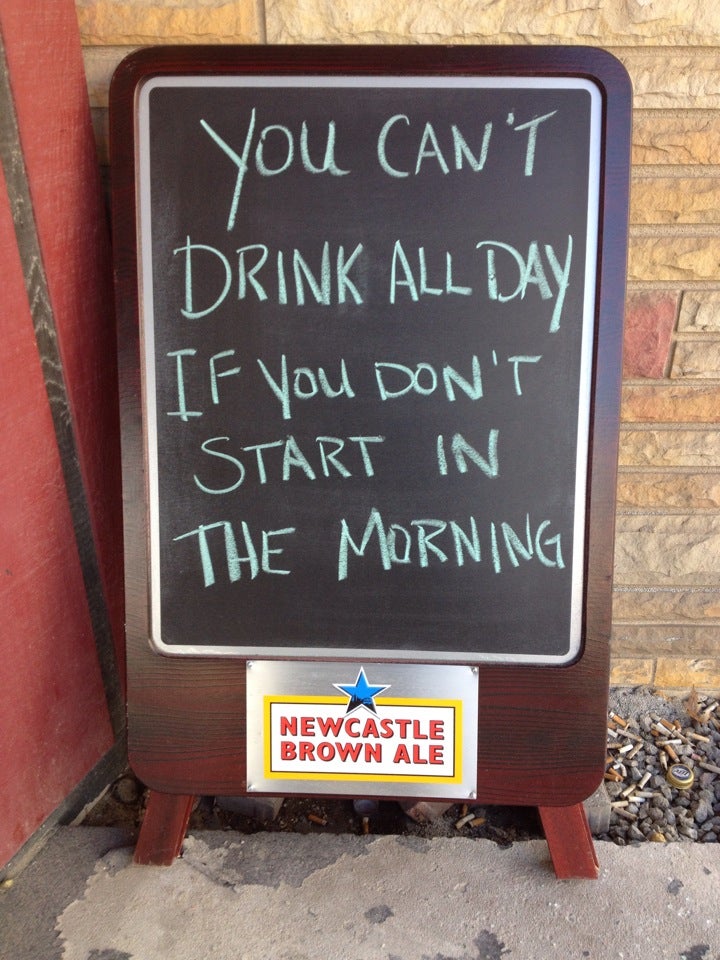 YOU CAN'T
DRINK ALL DAY
IF YOU DON'T
START IN
THE MORNING
NEWCASTLE
BROWN ALE